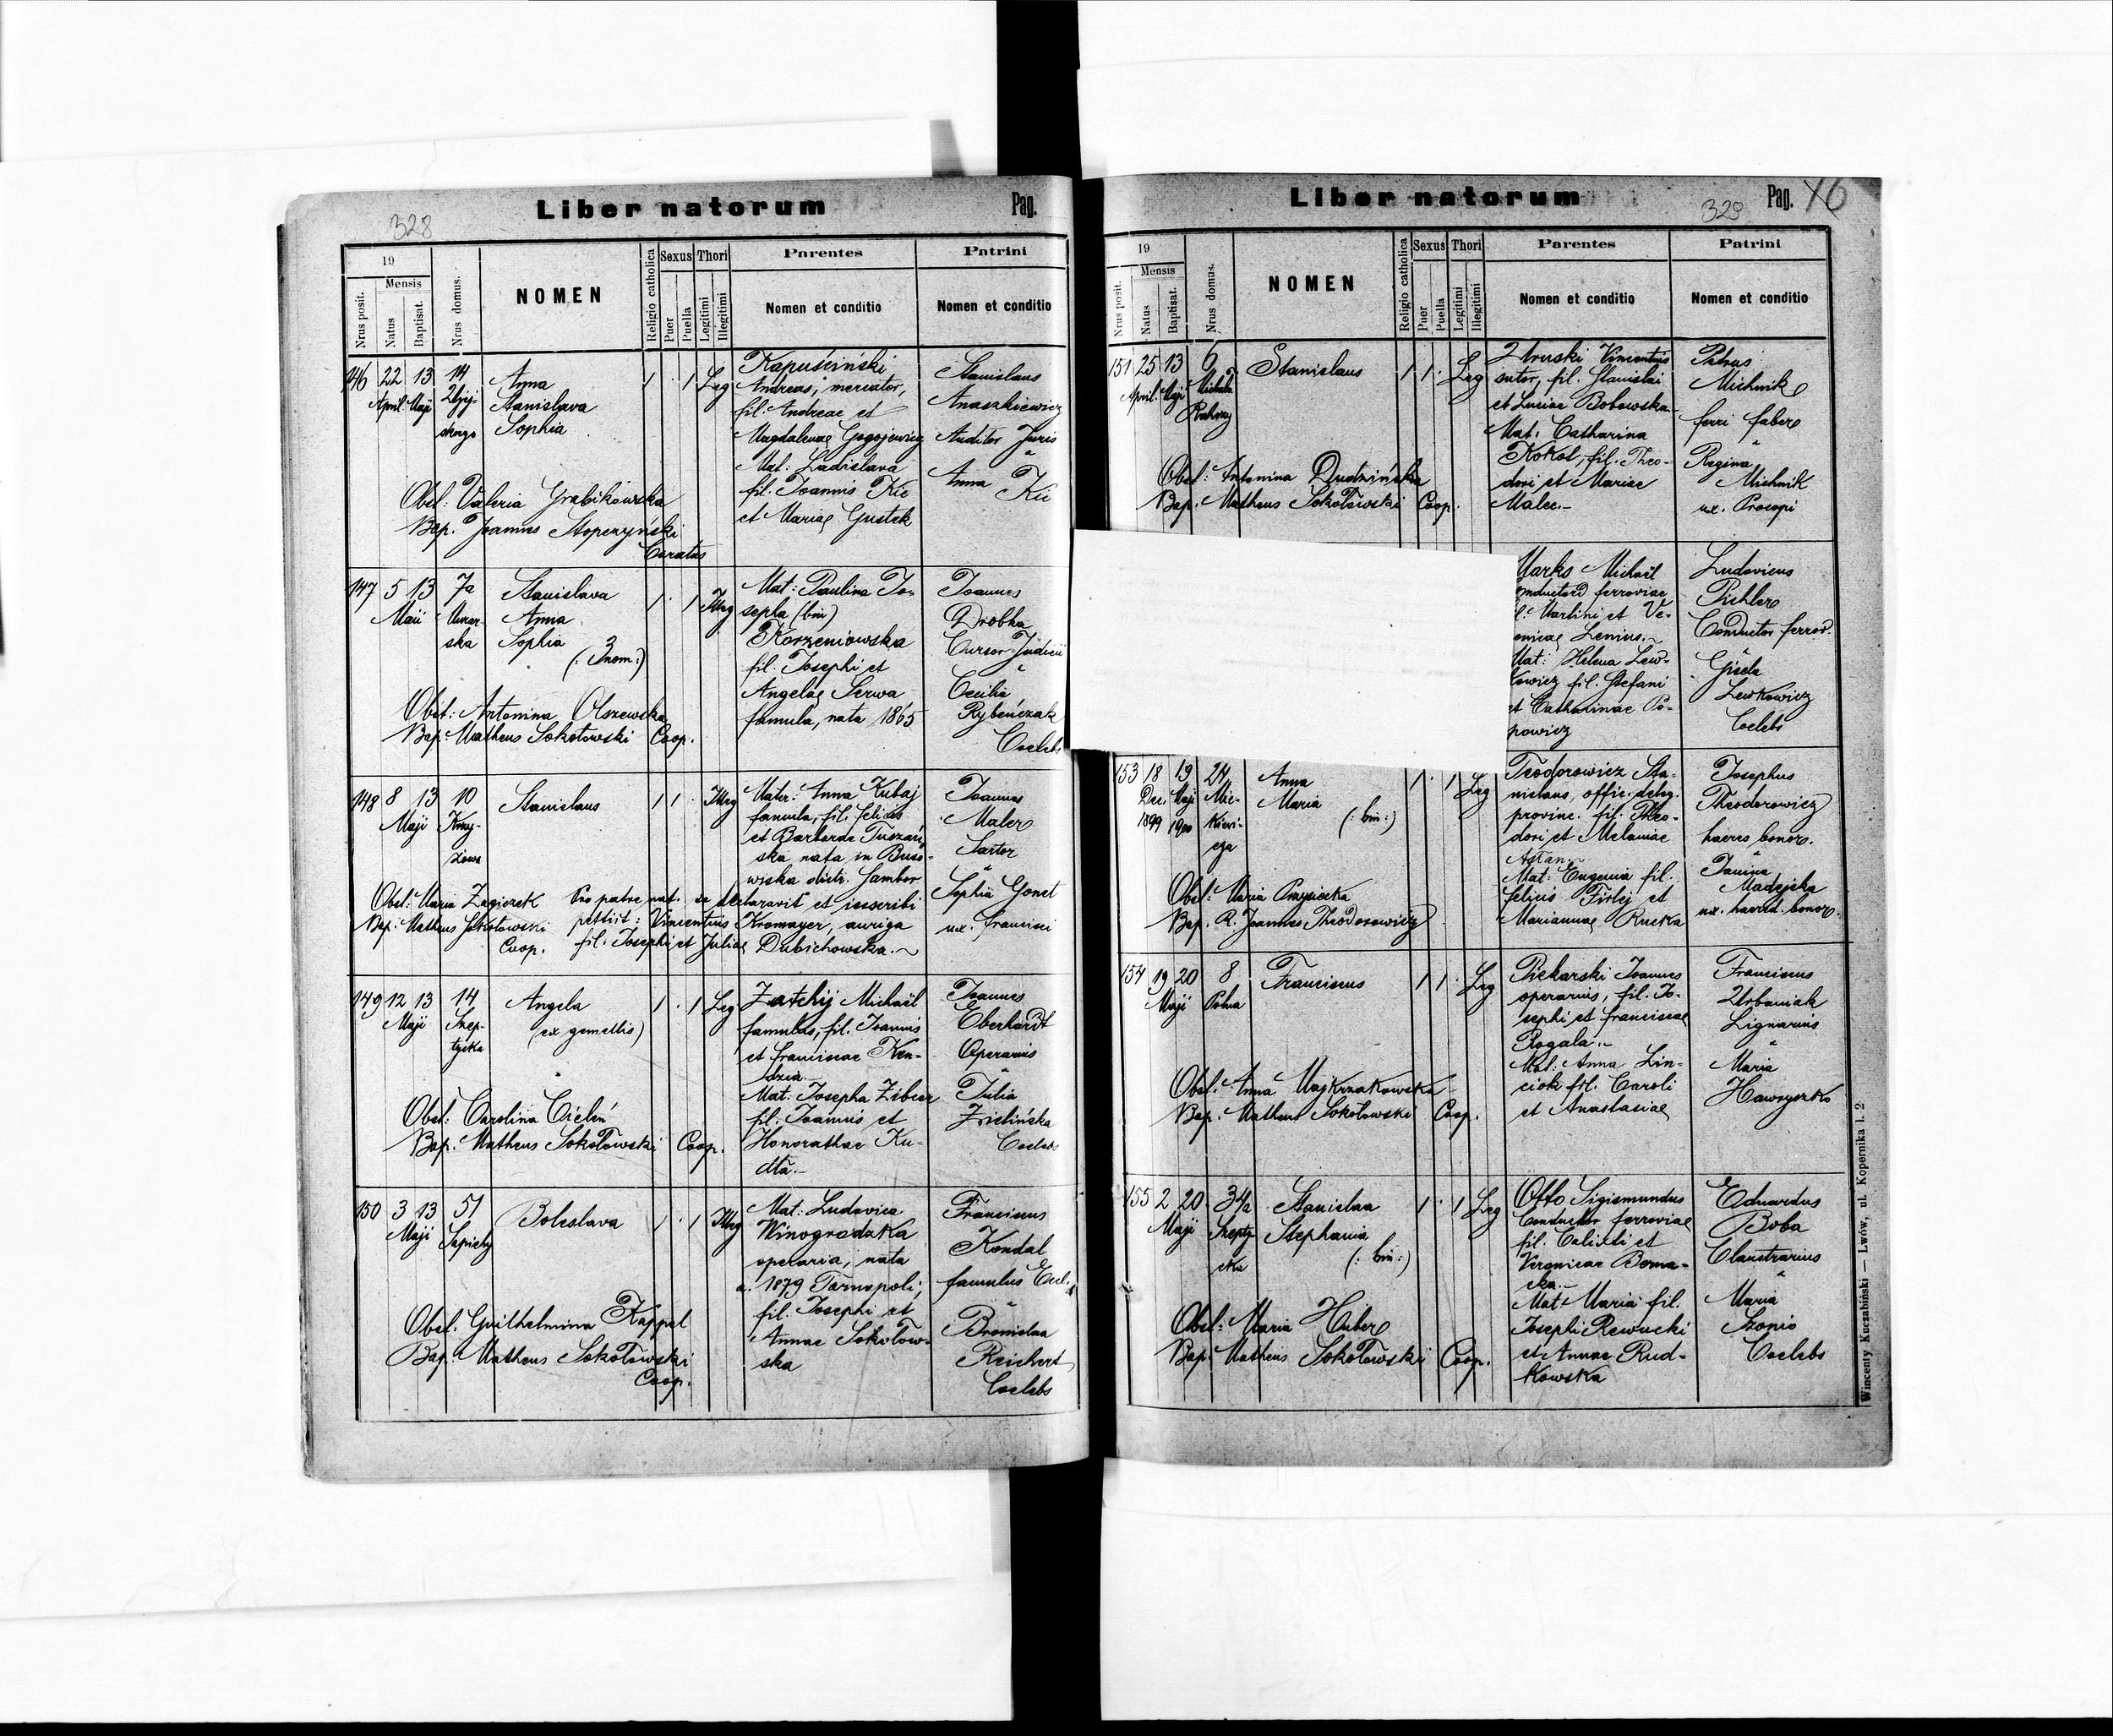 Liber natorum
Pag.
328
19
Mensis
Nrus posit.
Natus
Baptisat.
Nrus domus.
NOMEN
Religio catholica
Sexus
Puer
Puella
Thori
Legitimi
Illegitimi
Parentes
Nomen et conditio
Patrini
Nomen et conditio
146 22 13 14
April Maji
Anna
Stanislava
Sophia
1 1 Leg
Kapuściński
Andreas, mercator,
fil. Andreae et
Magdalenae Gogojewicz
Mat: Ladislava
fil. Joannis Kic
et Mariae Gustek
Stanislaus
Anaszkiewicz
Auditor Juris
Anna Kic
Obst: Valeria Grabikowska
Bap. Joannes Stopczyński
Curatus
147 5 13 7a
Maii
Stanislava
Anna
Sophia
(3 nom:)
1 1 Illeg
Mat: Paulina Jo-
sepha (bni)
Korzeniowska
fil. Josephi et
Angelae Serwa
famula, nata 1865
Joannes
Drobka
Cursor Judicii
Cecilia
Rybeńczak
Coelebs
Obst: Antonina Olszewska
Bap: Matheus Sokołowski Coop.
148 8 13 10
Maji
Stanislaus
1 1 Illeg
Mater: Anna Kubaj
famula, fil. felicis
et Barbarae Tuszań-
ska nata in Buso-
wiska distr. Sambor
Joannes
Maler
Sartor
Sophia Gonet
ux. francisci
Obst: Maria Zagiczek
Bap. Matheus Sokołowski
Coop.
Pro patre nat. se declaravit et inscribi
petiit: Vincentius Kromayer, auriga
fil. Josephi et Juliae Dubichowska.
149 12 13 14
Maji
Szep-
tycka
Angela
(ex gemellis)
1 1 Leg
Zatchij Michaël
famulus, fil. Joannis
et franciscae Ken-
dzia.
Mat: Josepha Ziber
fil. Joannis et
Honorathae Ku-
dła.
Joannes
Eberhardt
Operarius
Julia
Zielińska
Coelebs
Obst: Carolina Cieleń
Bap. Matheus Sokołowski Coop.
150 3 13 51
Maji
Sapiehy
Boleslava
1 1 Illeg
Mat: Ludovica
Winogrodzka
operaria, nata
a. 1879 Tarnopoli,
fil. Josephi et
Annae Sokołow-
ska
Franciscus
Kondal
famulus Eccl.
Bronislaa
Reichert
Coelebs
Obst. Guilhelmina Kappel
Bap. Matheus Sokołowski
Coop.
Liber natorum
329
Pag. 76
19
Mensis
Nrus posit.
Natus
Baptisat.
Nrus domus.
NOMEN
Religio catholica
Sexus
Puer
Puella
Thori
Legitimi
Illegitimi
Parentes
Nomen et conditio
Patrini
Nomen et conditio
151 25 13 6
April. Maji
Stanislaus
1 1 Leg
Vincentius
sutor, fil. Stanislai
et Luciae Bobowska
Mat: Catharina
Kokot, fil. Theo-
dori et Mariae
Malec.
Petrus
Michnik
ferri faber
Regina
Michnik
ux. Procopi
Obst: Antonina Dudzińska
Bap. Matheus Sokołowski Coop.
Marks Michaël
onductor ferroviae
l. Martini et Ve-
onicae Lenius.
Mat: Helena Lew-
kowicz fil. Stefani
et Catharinae Po-
powicz
Ludovicus
Pichler
Conductor ferrov.
Gisela
Lewkowicz
Coelebs
153 18 13 24
Dec. Maji
1899 1900
Mic-
kiewi-
cza
Anna
Maria
(: bin:)
1 1 Leg
Teodorowicz Sta-
nislaus, offic. deleg.
provinc. fil. Theo-
dori et Melaniae
Astan.
Mat: Eugenia fil.
felicis Firlej et
Mariannae Rucka
Josephus
Theodorowicz
haeres bonor.
Janina
Madejska
ux. haered. bonor.
Obst: Maria
Bap. R. Joannes Theodorowicz
154 19 20 8
Maji Polna
Franciscus
1 1 Leg
Piekarski Joannes
operarius, fil. Jo-
sephi et franciscae
Rogala.
Mat: Anna Lin-
ciok fil. Caroli
et Anastasiae
Franciscus
Urbaniak
Lignarius
Maria
Hawryszko
Obst. Anna Majkrzakowska
Bap. Matheus Sokołowski Coop.
155 2 20 34a
Maji
Szepty-
cka
Stanislaa
Stephania
(: bin:)
1 1 Leg
Otto Sigismundus
Conductor ferroviae
fil. Calixti et
Veronicae Borna-
cka.
Mat: Maria fil.
Josephi Rewucki
et Annae Rud-
kowska
Eduardus
Boba
Claustrarius
Maria
Szopio
Coelebs
Obst: Maria Huber
Bap. Matheus Sokołowski Coop.
Wincenty Kuczabiński — Lwów, ul. Kopernika l. 2